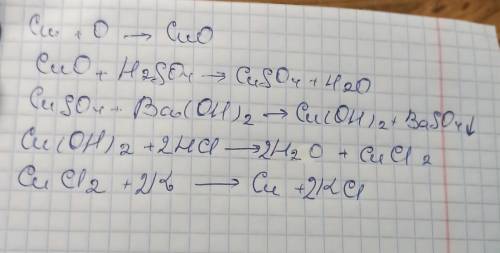 Cu + O → CuO
CuO + H2SO4 → CuSO4 + H2O
CuSO4 + Ba(OH)2 → Cu(OH)2 + BaSO4↓
Cu(OH)2 + 2HCl → 2H2O + CuCl2
CuCl2 + 2K → Cu + 2KCl